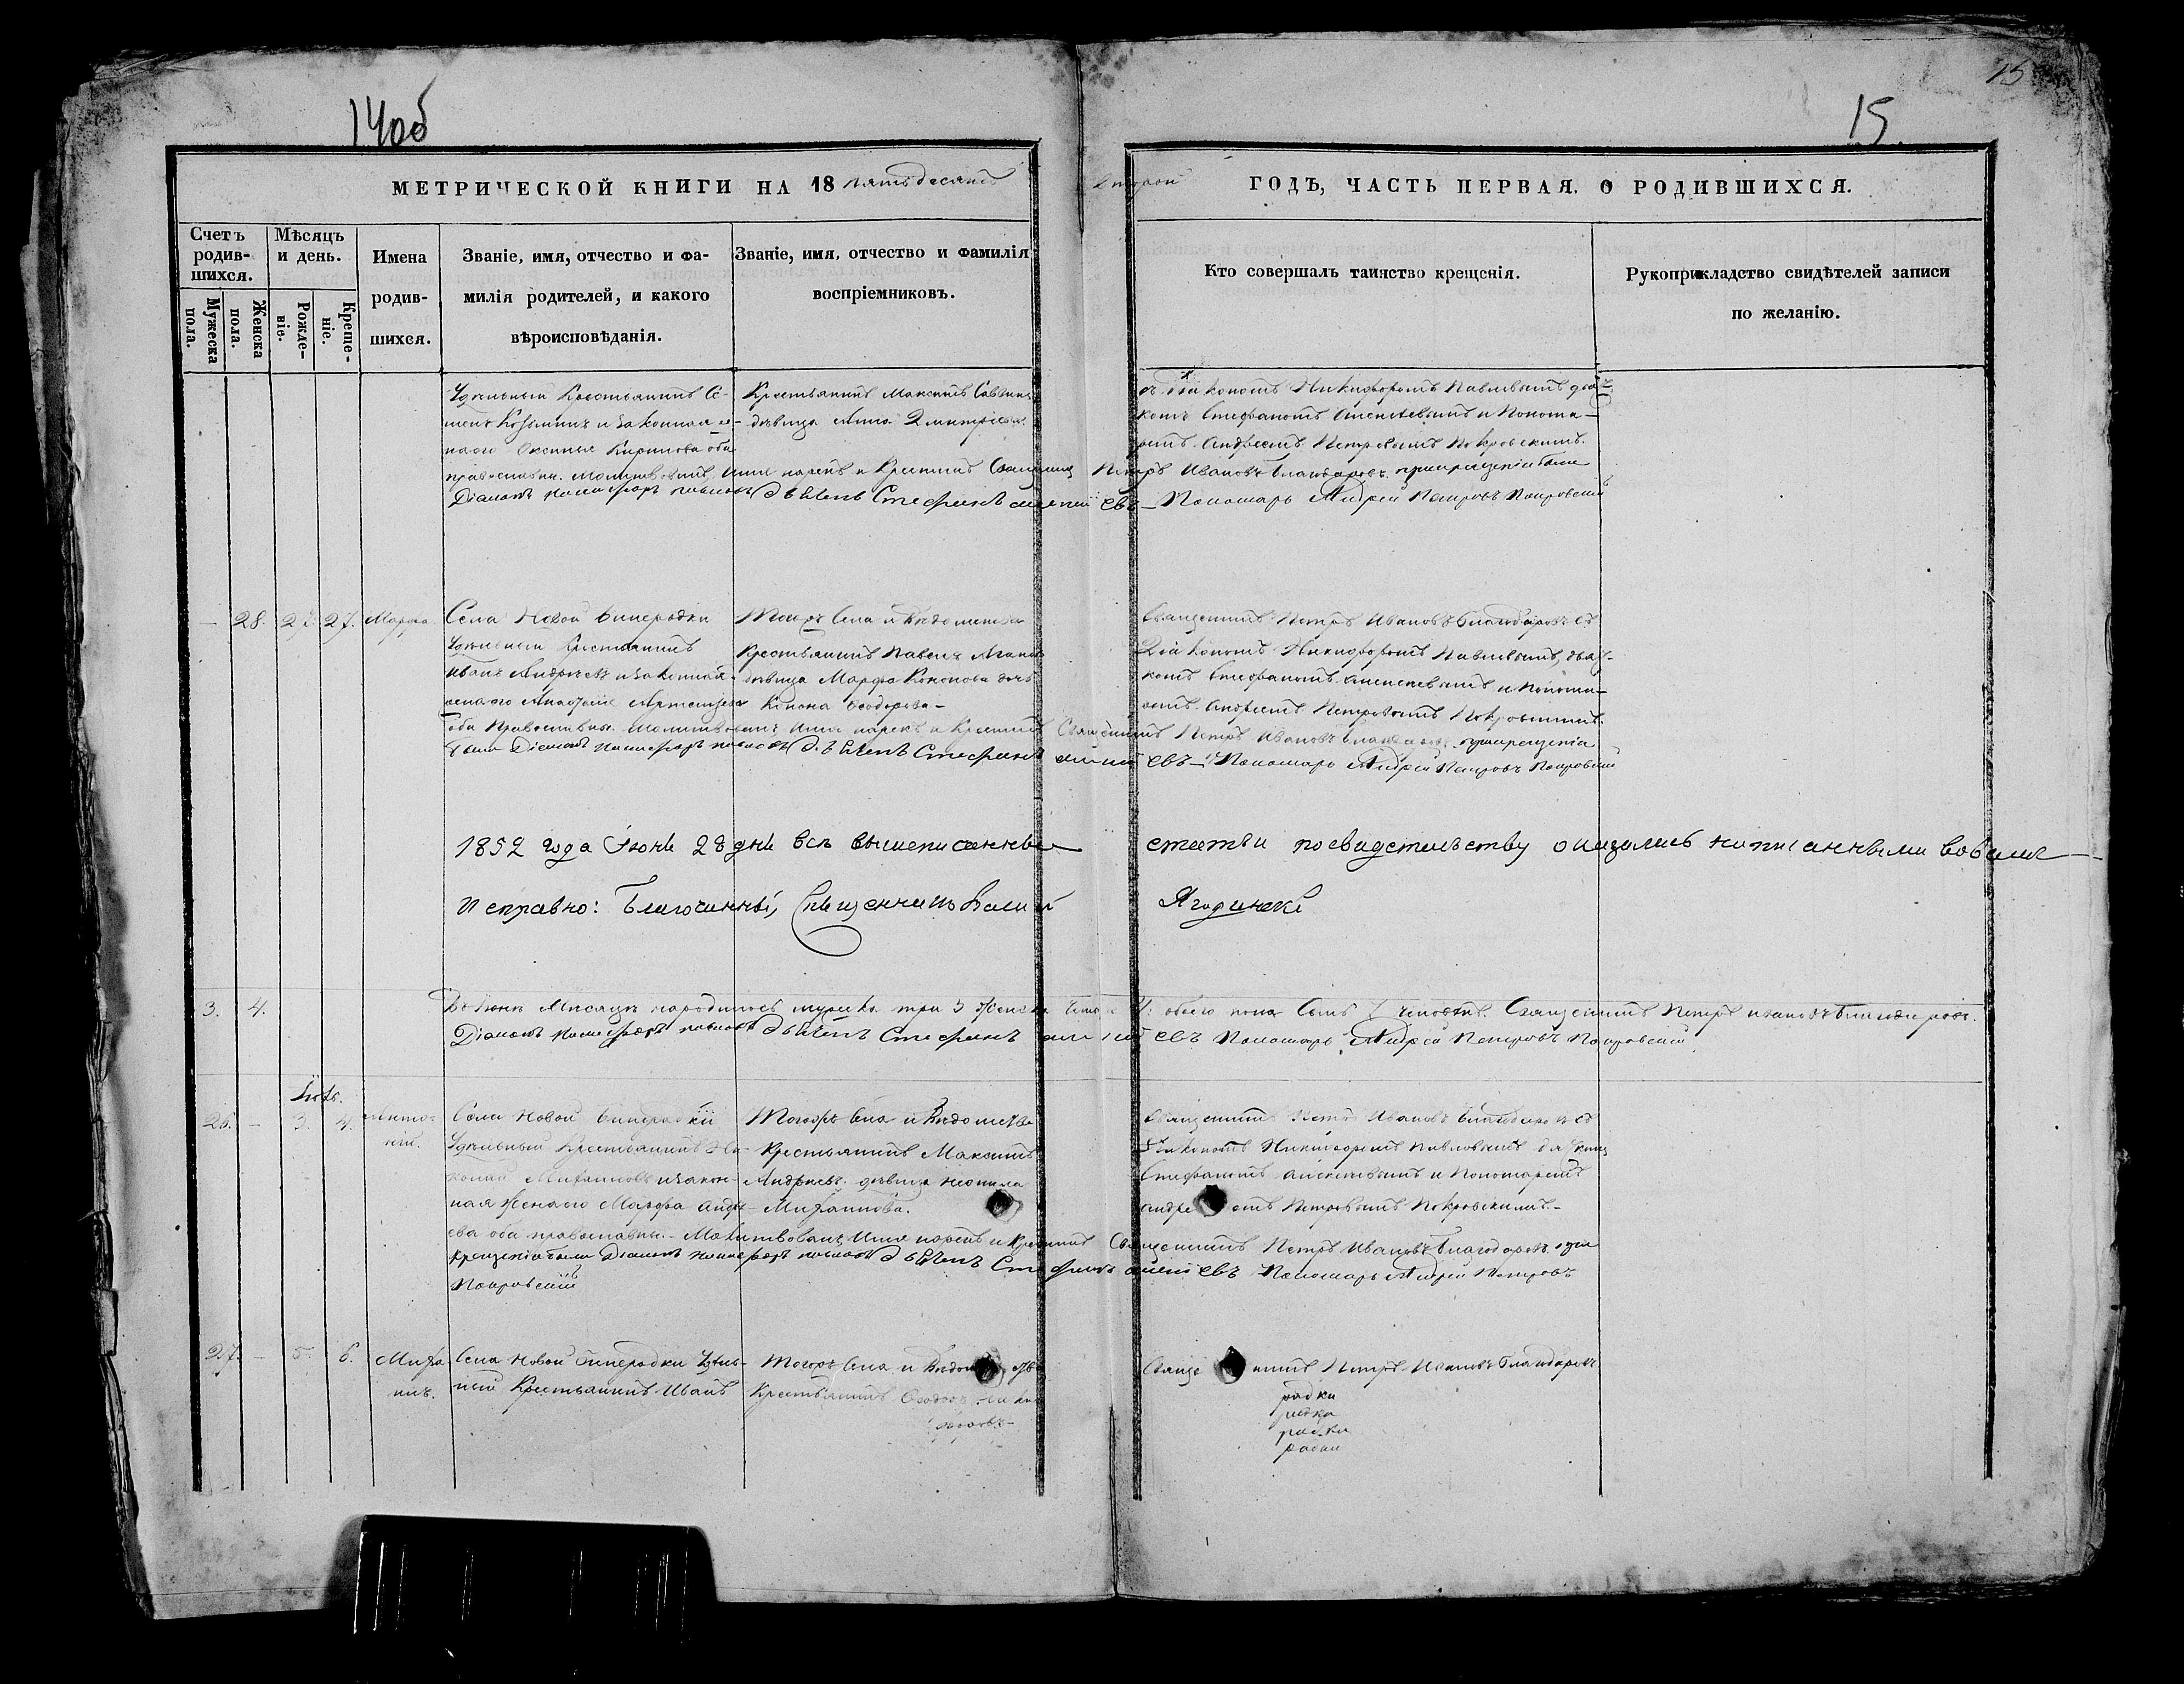 14об
15
15
МЕТРИЧЕСКОЙ КНИГИ НА 18 пятьдесятъ второй ГОДЪ, ЧАСТЬ ПЕРВАЯ. О РОДИВШИХСЯ.
Счетъ родившихся.
Мужеска пола.
Женска пола.
Мѣсяцъ и день.
Рожденіе.
Крещеніе.
Имена родившихся.
Званіе, имя, отчество и фамилія родителей, и какого вѣроисповѣданія.
Званіе, имя, отчество и фамилія воспріемниковъ.
Кто совершалъ таинство крещенія.
Рукоприкладство свидѣтелей записи по желанію.
Удѣльный Крестьянинъ Се-
менъ Козминъ и законная же-
на его Ксенія Кирилова оба
православны.
Крестьянинъ Максимъ Саввинъ
дѣвица Анна Димитріева
съ Діакономъ Никифоромъ Павловымъ дьяч-
комъ Стефаномъ Алексѣевымъ и Понома-
ремъ Андреемъ Петровымъ Покровскимъ.
Молитвовалъ, имя нарекъ и Крестилъ Священникъ Петръ Ивановъ Благодаровъ. при крещеніи были
Діаконъ Никифоръ Павловъ Дьячекъ Стефанъ Алексѣевъ Пономарь Андрей Петровъ Покровскій
28. 27. 27. Марфа.
Села Новой Бинарадки
Удѣльный Крестьянинъ
Иванъ Андреевъ и законная
жена его
оба Православны.
Тогожъ Села и Вѣдомства
Крестьянинъ Павелъ
дѣвица Марфа Кононова дочь
Конона Ѳеодорова
Священникъ Петръ Ивановъ Благодаровъ съ
Діакономъ Никифоромъ Павловымъ, дьяч-
комъ Стефаномъ Алексѣевымъ и Понома-
ремъ Андреемъ Петровымъ Покровскимъ.
Молитвовалъ имя нарекъ и Крестилъ Священникъ Петръ Ивановъ Благодаровъ. при крещеніи
были Діаконъ Никифоръ Павловъ Дьячекъ Стефанъ Алексѣевъ Пономарь Андрей Петровъ Покровскій
1852 года Іюня 28 дня всѣ вышеписанныя статьи по свидетельству оказались написанными
исправно: Благочинный, Священникъ Ягодинскій
3. 4.
Въ Іюнѣ Мѣсяцѣ народилось мужеска три 3 женска четыре 4: обоего пола семь 7 человѣкъ. Священникъ Петръ Ивановъ Благодаровъ.
Діаконъ Никифоръ Павловъ Дьячекъ Стефанъ Алексѣевъ Пономарь Андрей Петровъ Покровскій
Іюль.
26. 3. 4. Антоній.
Села Новой Бинарадки
Удѣльный Крестьянинъ Ни-
колай Михайловъ и закон-
ная жена его Марфа Андре-
ева оба православны.
Тогожъ Села и Вѣдомства
Крестьянинъ Максимъ
Андреевъ дѣвица Неонила
Михайлова.
Священникъ Петръ Ивановъ Благодаровъ съ
Діакономъ Никифоромъ Павловымъ дьячкомъ
Стефаномъ Алексѣевымъ и Пономаремъ
Андреемъ Петровымъ Покровскимъ.
Молитвовалъ, имя нарекъ и Крестилъ Священникъ Петръ Ивановъ Благодаровъ. при
крещеніи были Діаконъ Никифоръ Павловъ Дьячекъ Стефанъ Алексѣевъ Пономарь Андрей Петровъ
Покровскій
27. 5. 6. Михаилъ.
Села Новой Бинарадки Удѣль-
ный Крестьянинъ Иванъ
Тогожъ Села и Вѣдомства
Крестьянинъ Ѳеодоръ
Священникъ Петръ Ивановъ Благодаровъ
радки
радки
радки
радки